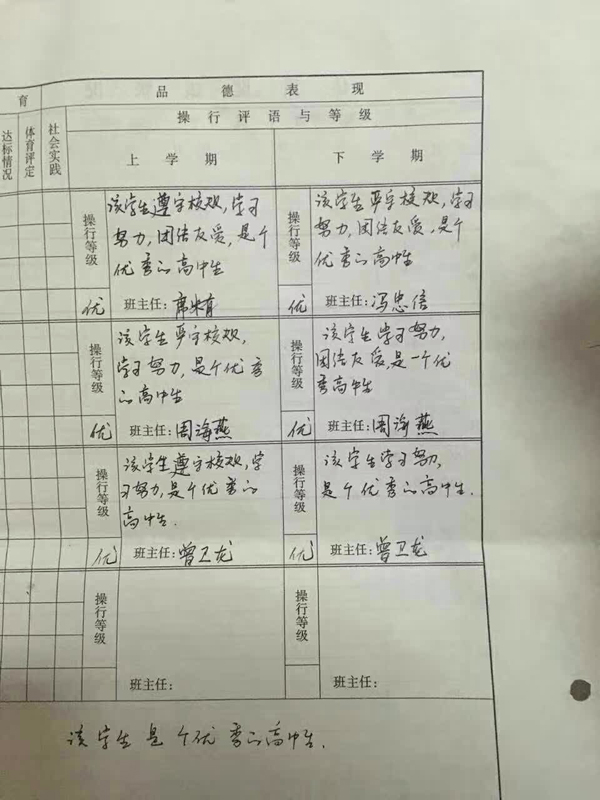 育 品德表现
操行评语与等级
达标情况 体育评定 社会实践
上学期 下学期
操行等级 优
该学生遵守校规,学习
努力,团结友爱,是个
优秀的高中生
班主任:
操行等级 优
该学生严守校规,学习
努力,团结友爱,是个
优秀的高中生
班主任:冯忠信
操行等级 优
该学生严守校规,
学习努力,是个优秀
的高中生
班主任:周海燕
操行等级 优
该学生学习努力,
团结友爱,是一个优
秀高中生
班主任:周海燕
操行等级 优
该学生遵守校规,学
习努力,是个优秀的
高中生.
班主任:曾卫龙
操行等级 优
该学生学习努力,
是个优秀的高中生.
班主任:曾卫龙
操行等级
班主任:
操行等级
班主任:
该学生是个优秀的高中生.